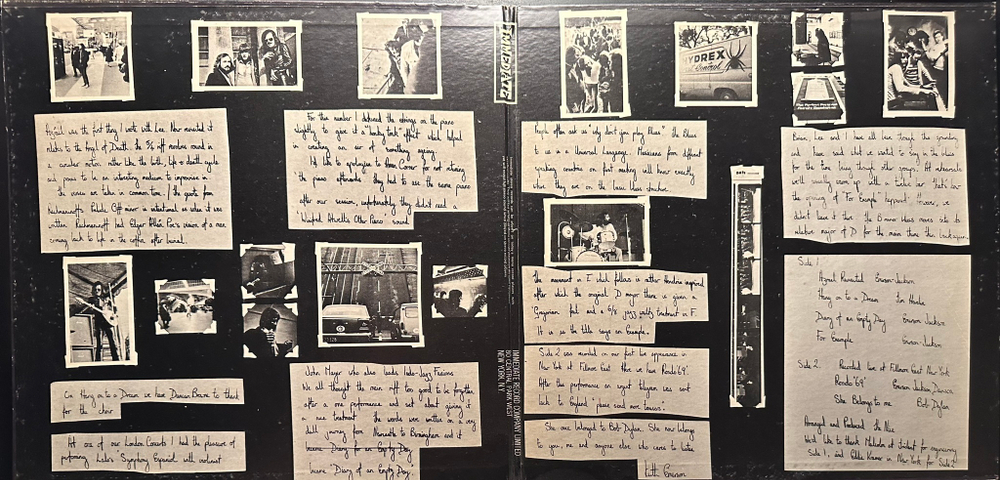 Azrael was the first thing I wrote with Lee. Now revisited it
relates to the Angel of Death. The 5/4 riff revolves round in
a circular motion, rather like the birth, life & death cycle
and proves to be an interesting motion to improvise in
the verses we take in common time. The quote from
Rachmaninoff's Prelude C# minor is intentional as when it was
written Rachmaninoff had Edgar Allan Poe's vision of a man
coming back to life in the coffin after burial.
For this number I detuned the strings on the piano
slightly to give it a "honky tonk" effect which helped
in creating an air of something ageing.
I'd like to apologise to
the piano afterwards they had to use the same piano
after our session, unfortunately they didn't need a
"Winifred Atwell's Other Piano" sound
On Hang on to a Dream we have Duncan Browne to thank
for the choir
At one of our London Concerts I had the pleasure of
performing Lalo's Symphony Espanol with violinist
John Mayer who also leads Indo-Jazz Fusions
We all thought the main riff too good to be forgotten
after a one performance and set about giving it
a new treatment. The words were written on a very
dull journey from Newcastle to Birmingham and it
became Diary of an Empty Day.
became Diary of an Empty Day.
IMMEDIATE RECORD COMPANY LIMITED
80 CENTRAL PARK WEST
NEW YORK, N.Y.
YDREX
Control
People often ask us "why don't you play Blues" the Blues
to us is a Universal Language. Musicians from different
speaking countries on first meeting will know exactly
where they are on the basic blues structure.
The movement in F which follows is rather Hendrix inspired
after which the original D major theme is given a
Gregorian feel and a 6/8 jazz waltz treatment in F.
It is as the title says an Example.
Side 2 was recorded on our first live appearance in
New York at Fillmore East. Here we have Rondo '69'.
After the performance an urgent telegram was sent
back to England 'please send more'
She once belonged to Bob Dylan. She now belongs
to you, me and anyone else who cares to listen
Keith Emerson
Brian, Lee and I have all been through the grinding
and I have said what we wanted to say in the blues
for the time being through other groups. At rehearsals
we'd usually warm up with a twelve bar that's how
the opening of For Example happened, however, we
didn't leave it there. The B minor blues moves into its
relative major of D for the main theme then back again.
Side 1.
Azrael Revisited Emerson-Jackson
Hang on to a Dream Tim Hardin
Diary of an Empty Day Emerson Jackson
For Example Emerson-Jackson
Side 2. Recorded live at Fillmore East New York
Rondo '69' Emerson Jackson Davison
She Belongs to Me Bob Dylan
Arranged and Produced The Nice
We'd like to thank Malcolm at Trident for engineering
Side 1, and Eddie Kramer in New York for Side 2